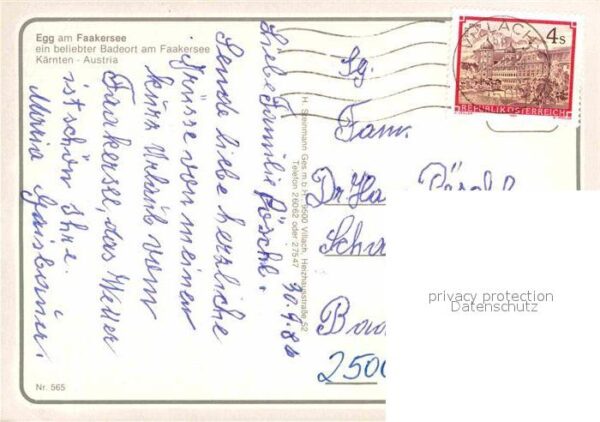 Egg am Faakersee
ein beliebter Badeort am Faakersee
Kärnten - Austria
Liebe Familie Pöschl.
Sende liebe herzliche
Grüsse von meinen
kurz Urlaub vom
Faakersee, das Wetter
ist schön Ihre.
Maria
30.9.86
H. Steinmann Ges.m.b.H. 9500 Villach, Heizhausstraße 52
Telefon 26082 oder 27547
VILLACH
4s
REPUBLIK ÖSTERREICH
Sg.
Fam.
Dr. Ha
2500
privacy protection
Datenschutz
Nr. 565